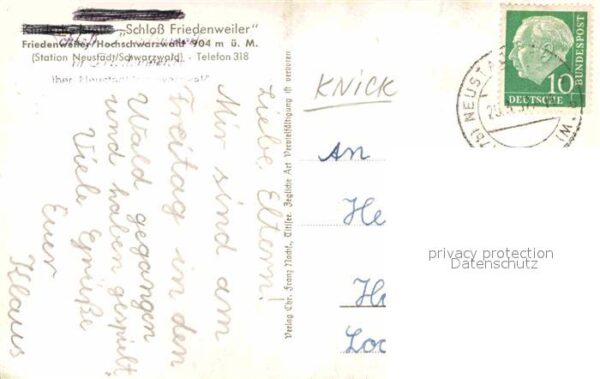 „Schloß Friedenweiler"
Friedenweiler/Hochschwarzwald 904 m ü. M.
(Station Neustadt/Schwarzwald) - Telefon 318
Liebe Eltern!
Wir sind am
Freitag in den
Wald gegangen
und haben gespielt.
Viele Grüße
Euer
Klaus
Verlag Chr. Franz Nachf., Titisee. Jegliche Art Vervielfältigung ist verboten
KNICK
An
He
Loc
10
DEUTSCHE
BUNDESPOST
NEUSTADT
privacy protection
Datenschutz